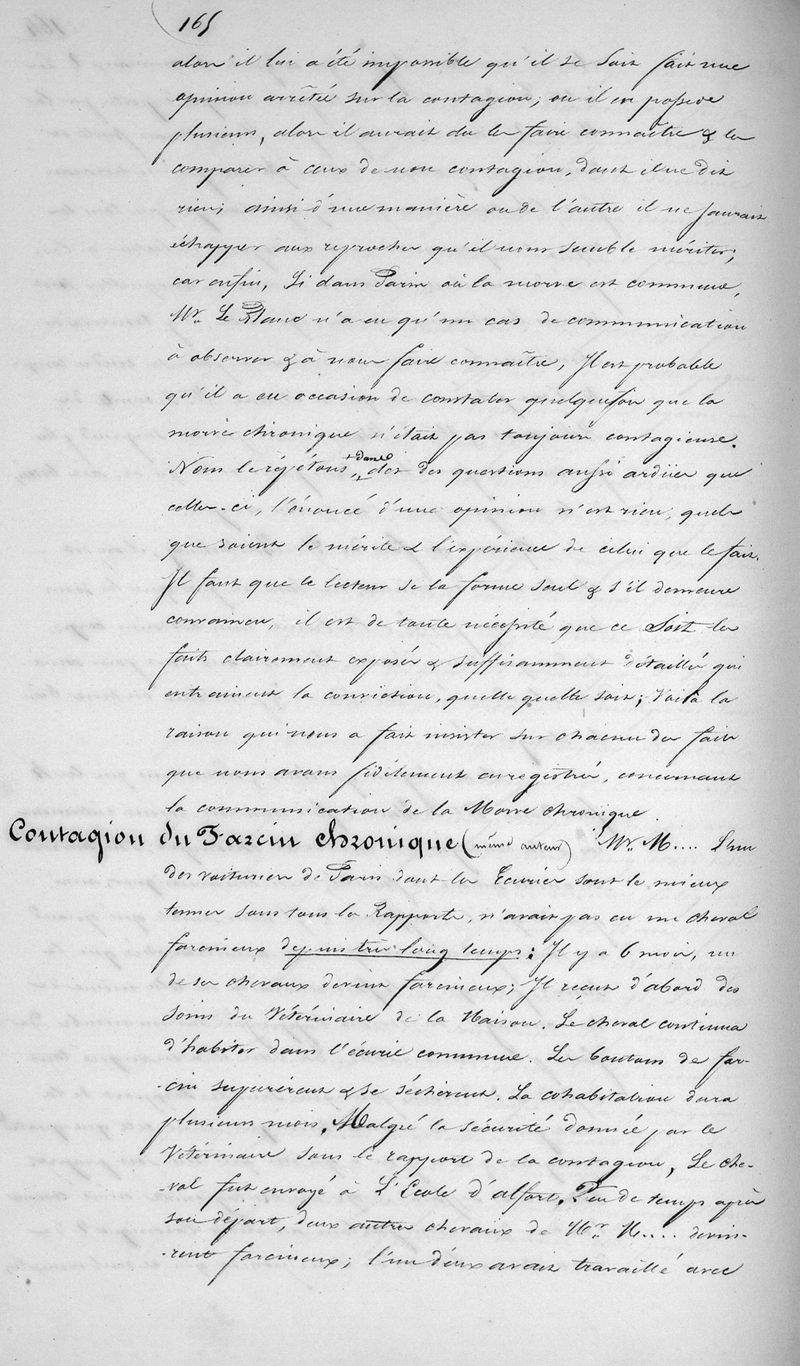 165
alors il lui a été impossible qu'il se soit fait une
opinion arrêtée sur la contagion; ou il en possede
plusieurs, alors il aurait du les faire connaître & les
comparer à ceux de non contagion, dont il ne dit
rien; ainsi d'une manière ou de l'autre il ne saurait
échapper aux reproches qu'il nous semble mériter;
car enfin, Si dans Paris où la morve est commune,
Mr. Le Blanc n'a eu qu'un cas de communication
à observer & à nous faire connaître, Il est probable
qu'il a eu occasion de constater quelquefois que la
morve chronique n'était pas toujours contagieuse.
Nous le répétons, dans des questions aussi ardües que
celles-ci, l'énoncé d'une opinion n'est rien, quels
que soient le mérite & l'expérience de celui que le fait.
Il faut que le lecteur se la forme seul & s'il demeure
convaincu, il est de toute nécessité que ce soit les
faits clairement exposés & suffisamment détaillés qui
entrainent la conviction, quelle quelle soit; Voilà la
raison qui nous a fait insister sur chacun des faits
que nous avons fidèlement enregistrés, concernant
la communication de la Morve chronique.
Contagion du Farcin chronique (même auteur) Mr. M.... L'un
des voituriers de Paris dont les Ecuries sont le mieux
tenues sous tous les Rapports, n'avait pas eu un cheval
farcineux depuis très long temps: Il y a 6 mois, un
de ses chevaux devint farcineux; Il reçut d'abord des
soins du Vétérinaire de la Maison. Le cheval continua
d'habiter dans l'écurie commune. Les boutons de far-
-cin supurèrent & se séchèrent. La cohabitation dura
plusieurs mois. Malgré la sécurité donnée par le
Vétérinaire sous le rapport de la contagion, Le che-
-val fut envoyé à L'Ecole d'alfort. Peu de temps après
son départ, deux autres chevaux de Mr. M.... devin-
-rent farcineux; l'un d'eux avait travaillé avec